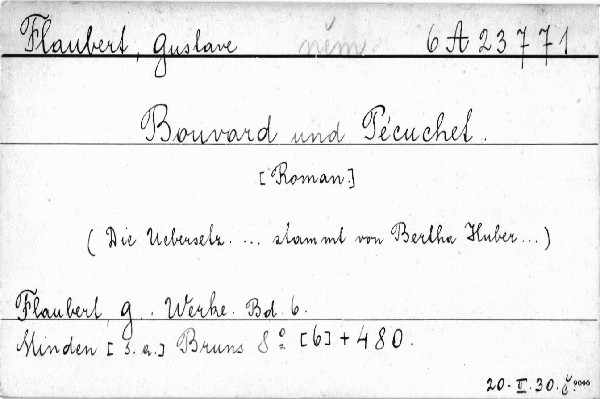 Flaubert, Gustave něm 6 A 23771
Bouvard und Pécuchet.
[Roman.]
(Die Uebersetz. ... stammt von Bertha Huber ...)
Flaubert, G. Werke. Bd. 6.
Minden [s. a.] Bruns 8° [6] + 480.
20. II. 30. Č.